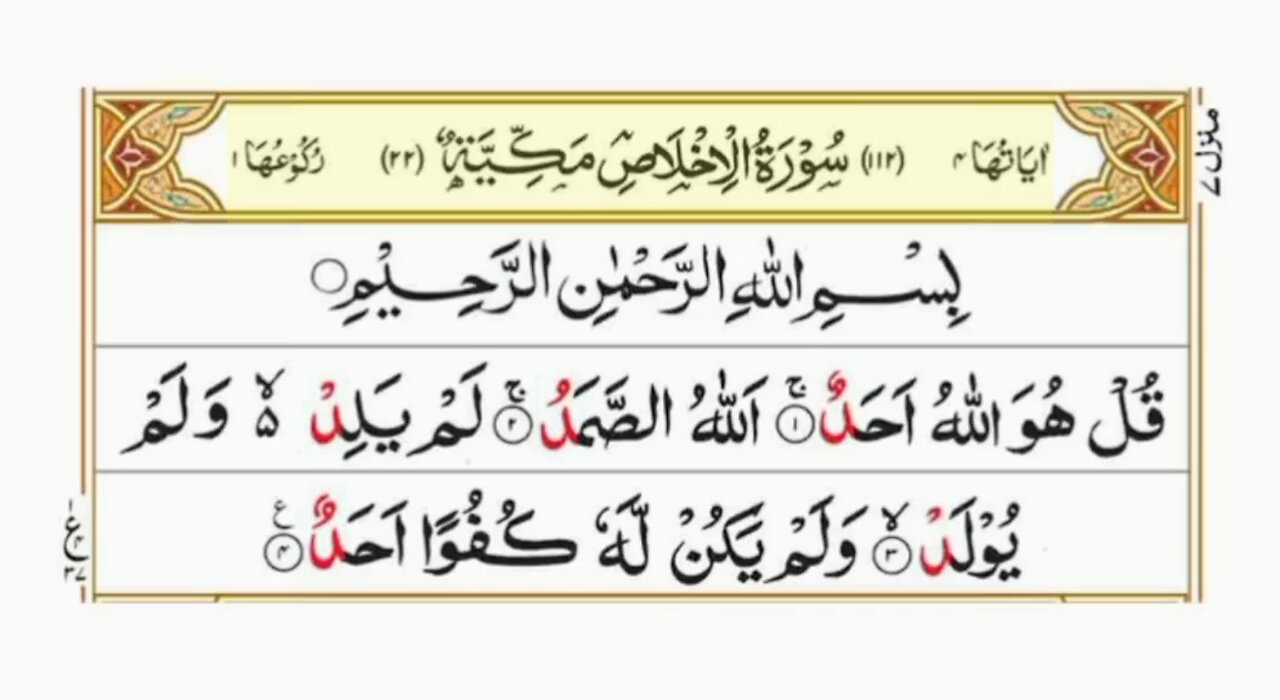 اٰيَاتُهَا ۴ (۱۱۲) سُوْرَةُ الْاِخْلَاصِ مَكِّيَّةٌ (۲۲) رُكُوْعُهَا ۱
منزل ۷
بِسْمِ اللّٰهِ الرَّحْمٰنِ الرَّحِيْمِ
قُلْ هُوَ اللّٰهُ اَحَدٌ ۚ‏﴿۱﴾ اَللّٰهُ الصَّمَدُ ۚ‏﴿۲﴾ لَمْ يَلِدْ ۙ۬ وَلَمْ
يُوْلَدْ ۙ‏﴿۳﴾ وَلَمْ يَكُنْ لَّهٗ كُفُوًا اَحَدٌ ﴿۴﴾
ع
۱
ع
۴
۳۷